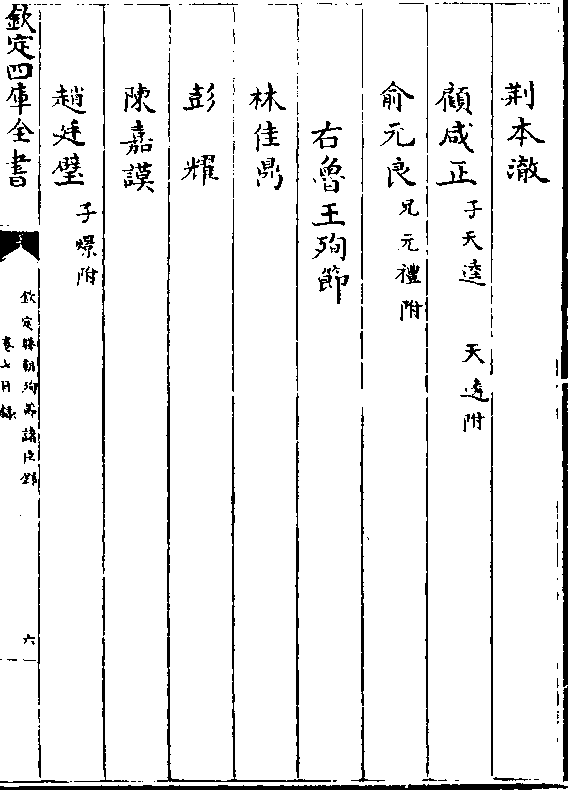 荆本澈
顧咸正 子天逵 天遴附
俞元良 兄元禮附
右魯王殉節
林佳鼎
彭耀
陳嘉謨
趙廷璧 子㬢附
欽定四庫全書
欽定勝朝殉節諸臣錄
卷七目錄
六